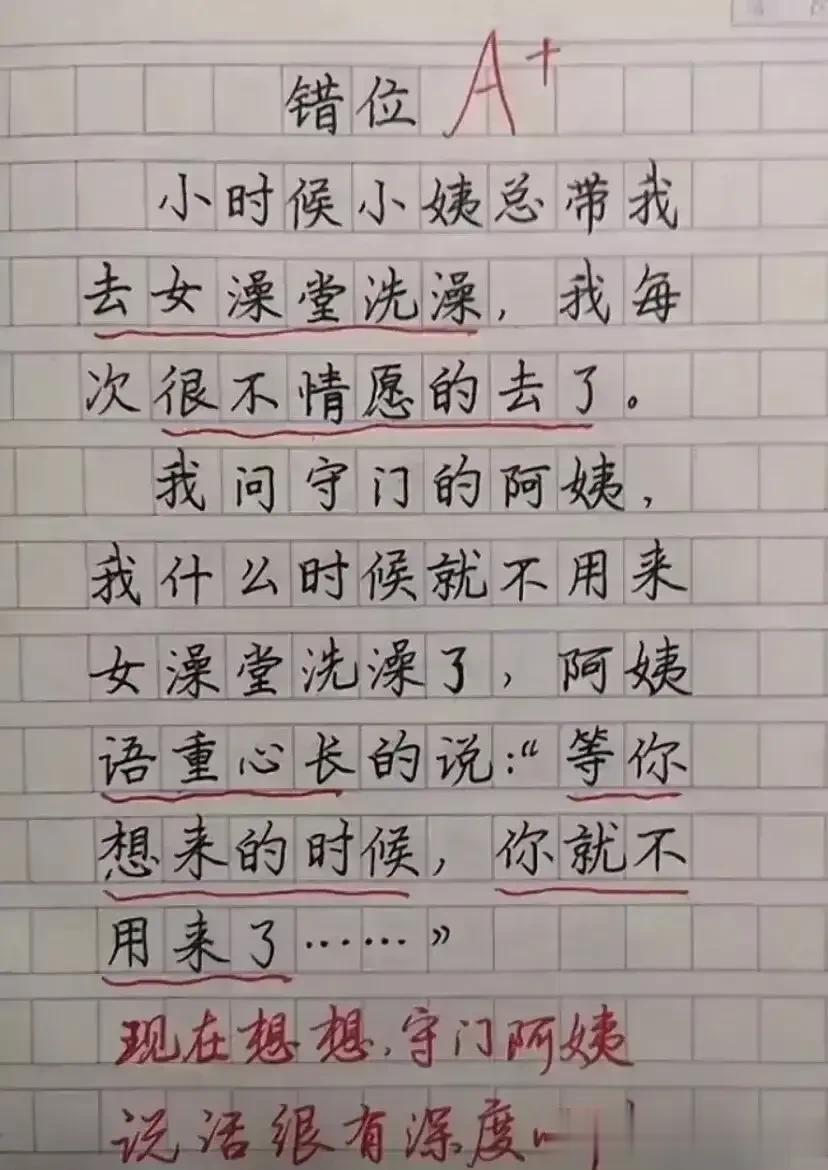 错位 A+
小时候小姨总带我
去女澡堂洗澡，我每
次很不情愿的去了。
我问守门的阿姨，
我什么时候就不用来
女澡堂洗澡了，阿姨
语重心长的说：“等你
想来的时候，你就不
用来了……”
现在想想，守门阿姨
说话很有深度